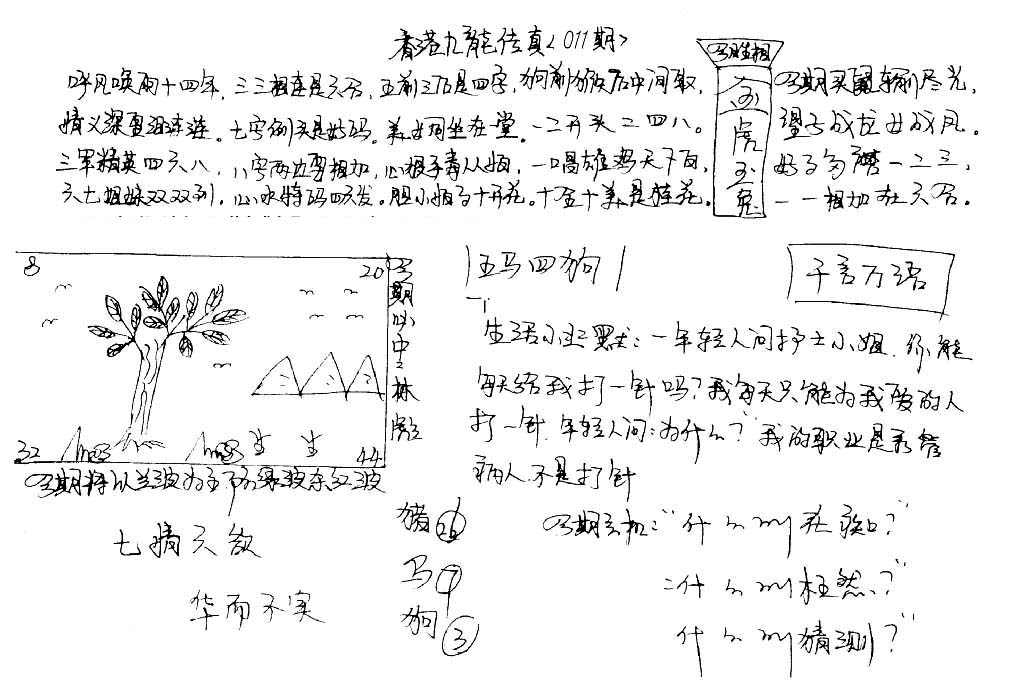 香港九龍传真〈011期〉
呼风唤雨十四年，三三相连是六合，五前三后是四字，狗前猴后中间取，
情义深重 连连。七字例头是好码。美女同坐在堂。一二开头二四八。
三军精英四六八，八字两边要相加，心狠手毒人人怕，一唱雄鸡天下白，
六七姐妹双双到，心水特码四六发。胆小怕子十开花。十全十美是桂花。
四期 相
金
虎
玉
兔
四期买 尽光，
望子成龙女成凤。
好了勾 一二三，
一一相加在六合。
8
20
32
44
四期以中林
四期特以兰波为主 绿波 红波
七情六欲
华而不实
猪 26
马 7
狗 3
五马四狗
千言万语
生活小幽默：一年轻人问护士小姐，你能
每天给我打一针吗？我每天只能为我爱的人
打一针，年轻人问：为什么？我的职业是看管
病人，不是打针
四期玄机："什么 在 口？"
"什么 枉然？"
什么 猜测？"